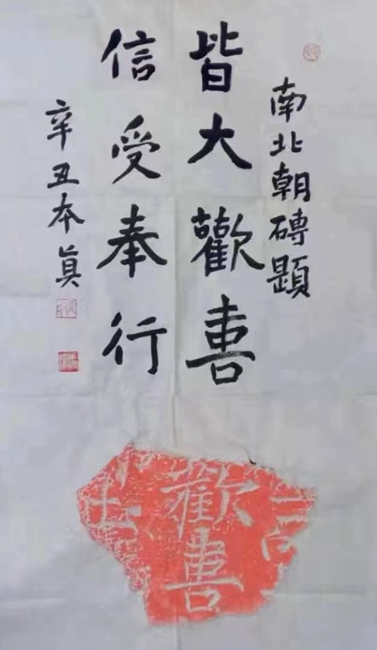 南北朝磚題
皆大歡喜
信受奉行
辛丑本真
歡喜